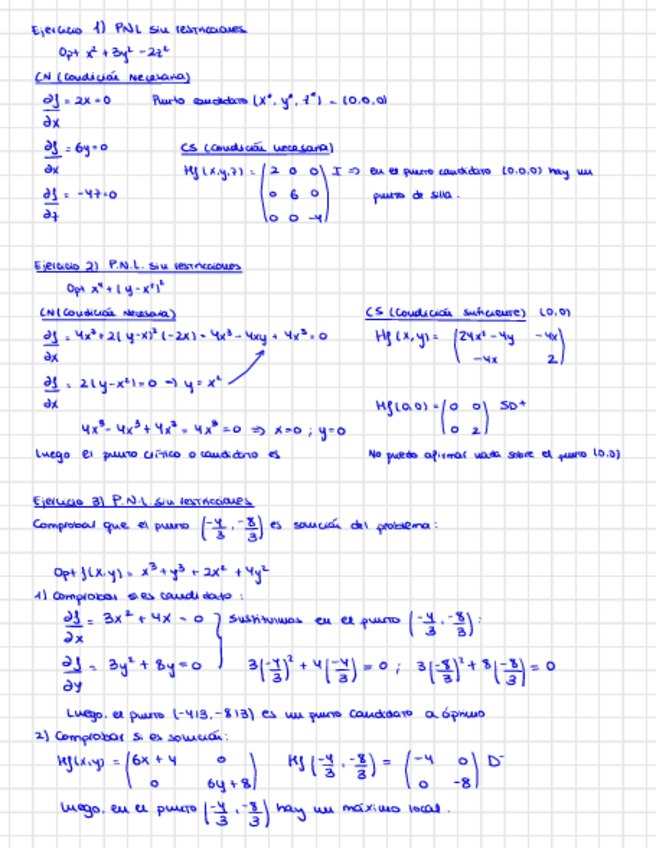 Ejercicio 1) P.N.L sin restricciones
Opt x² + 3y² - 2z²
CN (Condición Necesaria)
∂f/∂x = 2x = 0 Punto candidato (x*, y*, z*) = (0,0,0)
∂f/∂x = 6y = 0 CS (Condición necesaria)
∂f/∂z = -4z = 0 Hf(x,y,z) = (2 0 0; 0 6 0; 0 0 -4) I => en el punto candidato (0,0,0) hay un
punto de silla.
Ejercicio 2) P.N.L. sin restricciones
Opt x⁴ + (y - x²)²
CN (Condición Necesaria) CS (Condición suficiente) (0,0)
∂f/∂x = 4x³ + 2(y-x)² (-2x) = 4x³ - 4xy + 4x³ = 0 Hf(x,y) = (24x² - 4y -4x; -4x 2)
∂f/∂x = 2(y-x²) = 0 => y = x²
4x³ - 4x³ + 4x³ = 4x³ = 0 => x=0 ; y=0 Hf(0,0) = (0 0; 0 2) SD+
Luego el punto crítico o candidato es No puedo afirmar nada sobre el punto (0,0)
Ejercicio 3) P.N.L. sin restricciones
Comprobar que el punto (-4/3, -8/3) es solución del problema:
Opt f(x,y) = x³ + y³ + 2x² + 4y²
1) Comprobar si es candidato:
∂f/∂x = 3x² + 4x = 0 } Sustituimos en el punto (-4/3, -8/3):
∂f/∂y = 3y² + 8y = 0 3(-4/3)² + 4(-4/3) = 0 ; 3(-8/3)² + 8(-8/3) = 0
Luego, el punto (-4/3, -8/3) es un punto candidato a óptimo
2) Comprobar si es solución:
Hf(x,y) = (6x + 4 0; 0 6y + 8) Hf(-4/3, -8/3) = (-4 0; 0 -8) D-
Luego, en el punto (-4/3, -8/3) hay un máximo local.